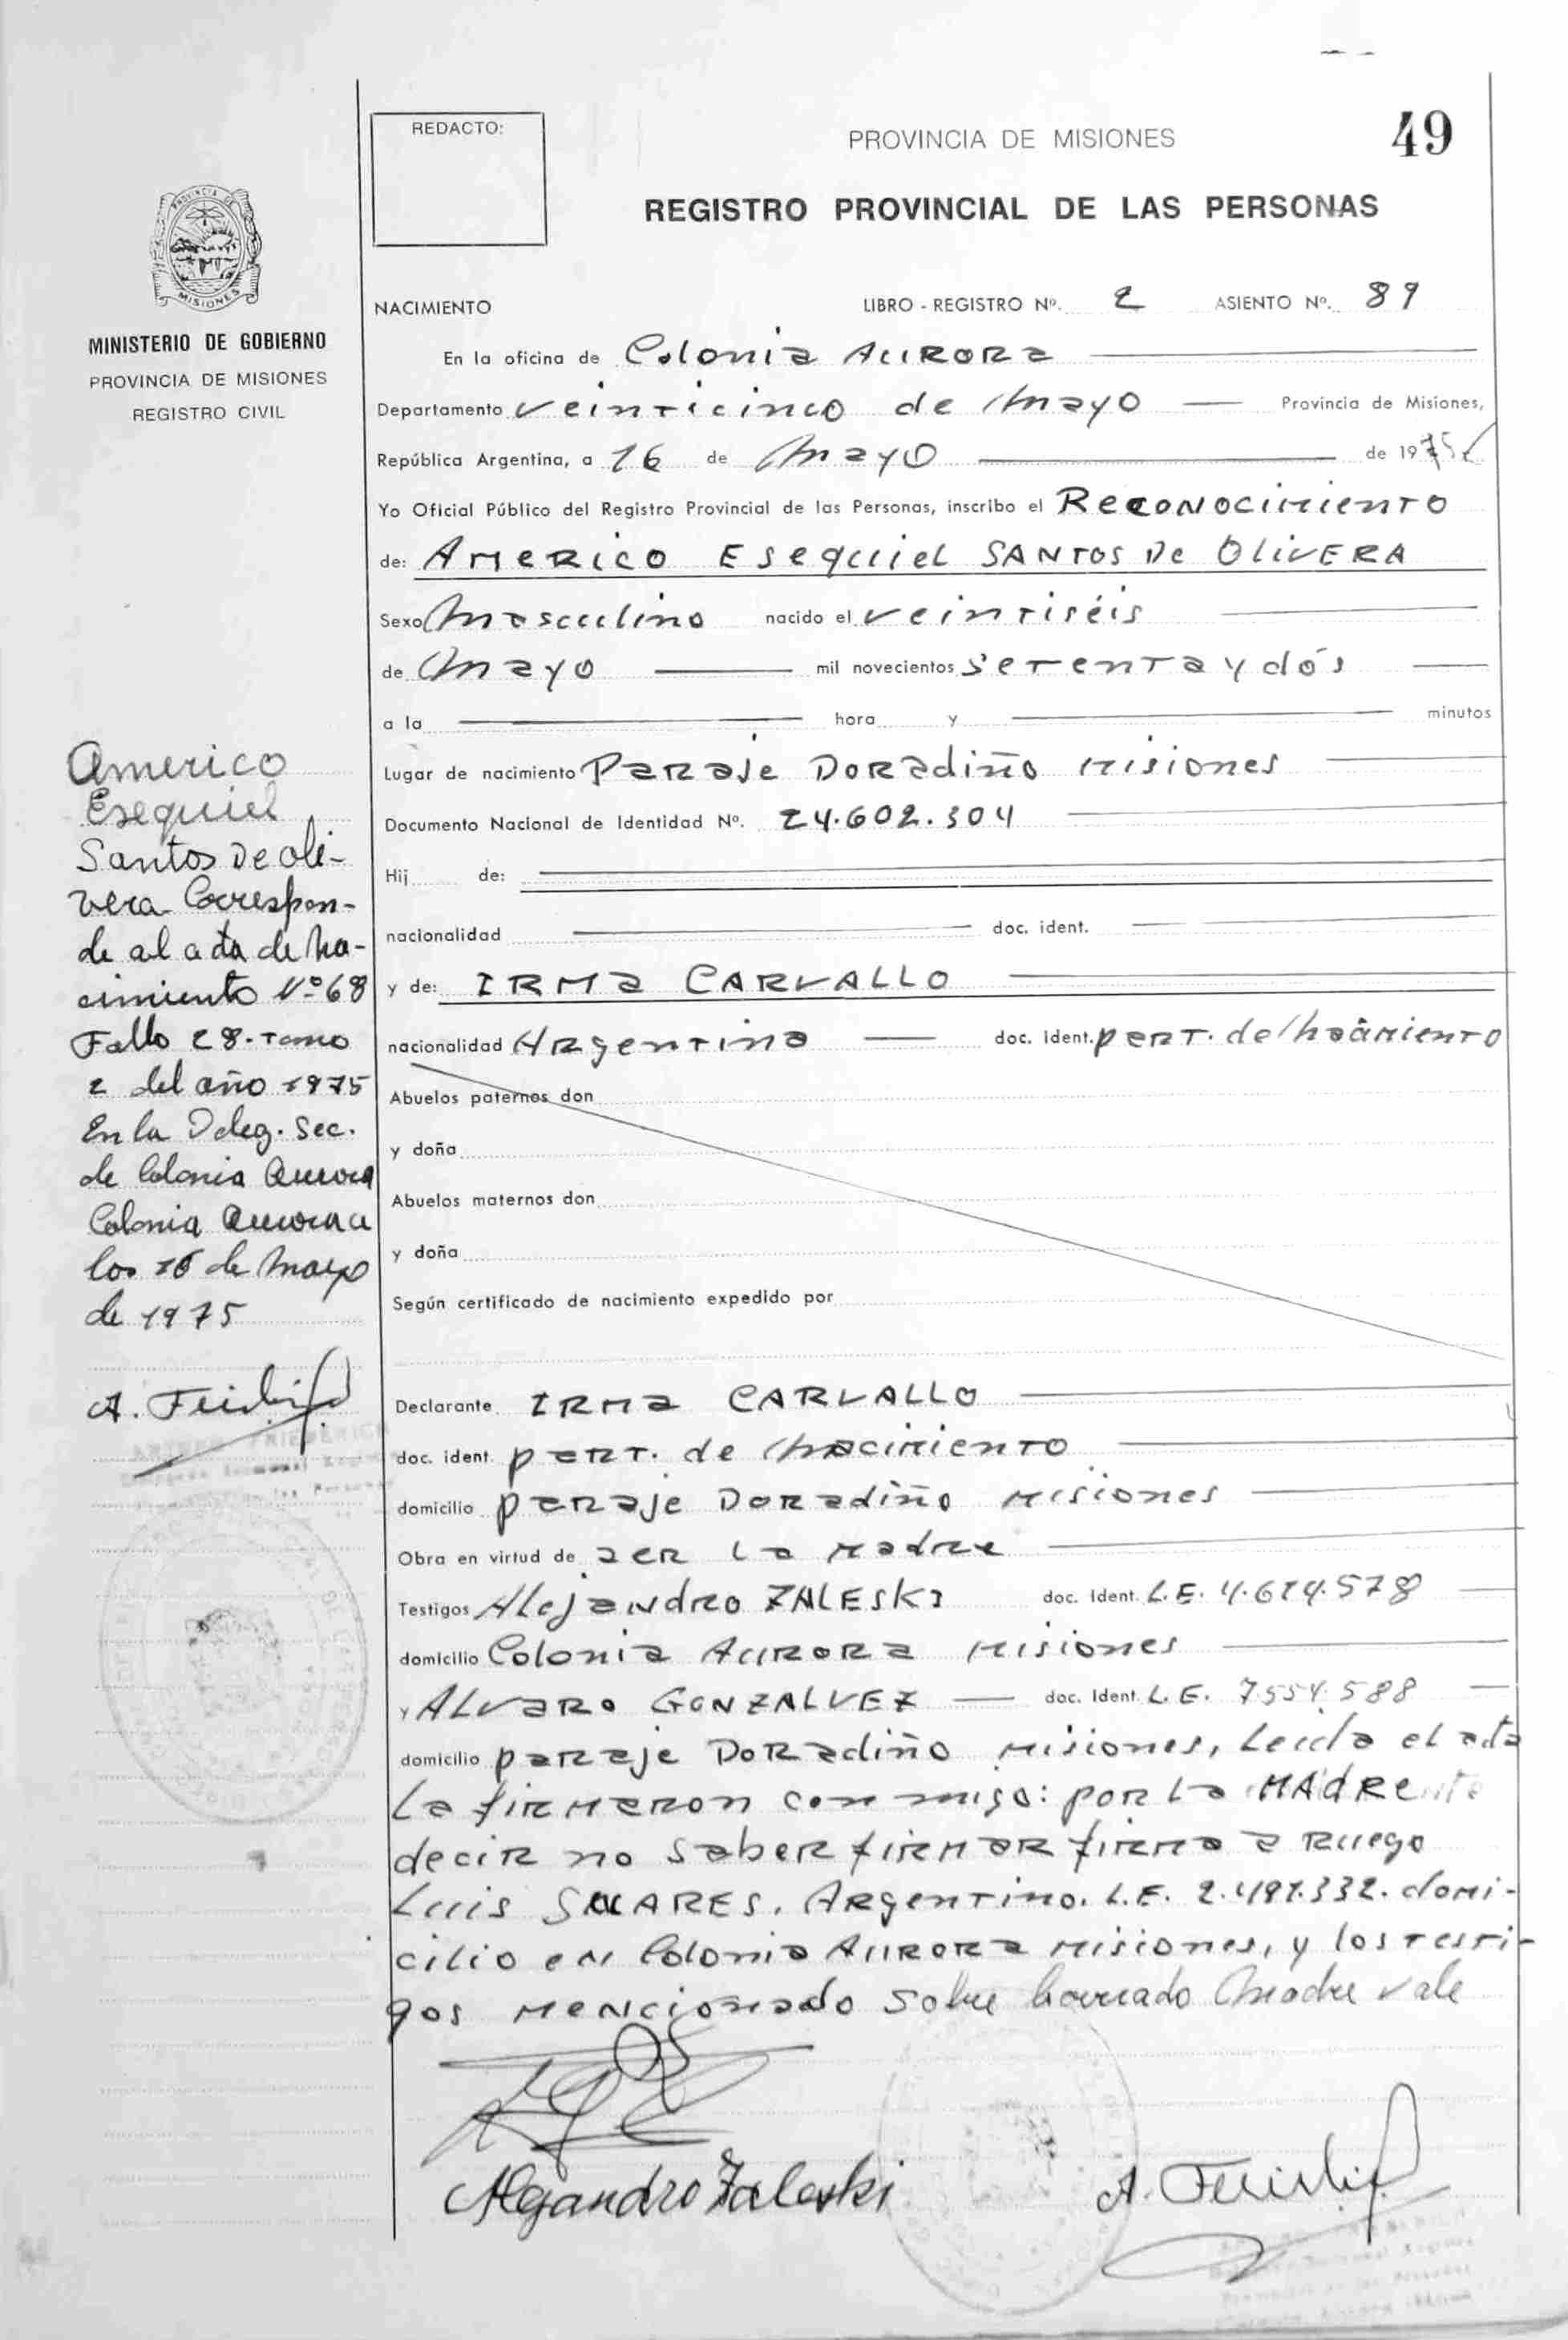 REDACTO:
PROVINCIA DE MISIONES
49
REGISTRO PROVINCIAL DE LAS PERSONAS
MISIONES
MINISTERIO DE GOBIERNO
PROVINCIA DE MISIONES
REGISTRO CIVIL
NACIMIENTO LIBRO - REGISTRO Nº. 2 ASIENTO Nº. 89
En la oficina de Colonia Aurora
Departamento veinticinco de Mayo Provincia de Misiones,
República Argentina, a 16 de Mayo de 1975
Yo Oficial Público del Registro Provincial de las Personas, inscribo el Reconocimiento
de: Americo Esequiel SANTOS De OliVERA
Sexo Masculino nacido el veintiséis
de Mayo mil novecientos setenta y dós
a la hora y minutos
Lugar de nacimiento Paraje Doradiño Misiones
Documento Nacional de Identidad Nº. 24.602.304
Hij de:
nacionalidad doc. ident.
y de: IRMa CARVALLO
nacionalidad Argentina doc. ident. part. de Nacimiento
Abuelos paternos don
y doña
Abuelos maternos don
y doña
Según certificado de nacimiento expedido por
Americo
Esequiel
Santos De Oli-
vera Correspon-
de al acta de Na-
cimiento Nº 68
Fallo 28. Tomo
2 del año 1975
En la Deleg. Sec.
de Colonia Aurora
Colonia Aurora a
los 16 de Mayo
de 1975
Declarante IRMa CARVALLO
doc. ident. part. de Nacimiento
domicilio paraje Doradiño Misiones
Obra en virtud de ser la Madre
Testigos Alejandro ZALESKI doc. Ident. L.E. 4.614.578
domicilio Colonia Aurora Misiones
y ALvaRo GONZALVEZ doc. Ident. L.E. 7554.588
domicilio paraje Doradiño Misiones, Leida el acta
La firmaron con migo: por la MADRE
decir no saber firmar firma a Ruego
Luis SUARES, Argentino. L.E. 2.491.332. domi-
cilio en Colonia Aurora Misiones, y los testi-
gos Mencionado sobre borrado Madre vale
Alejandro Zaleski